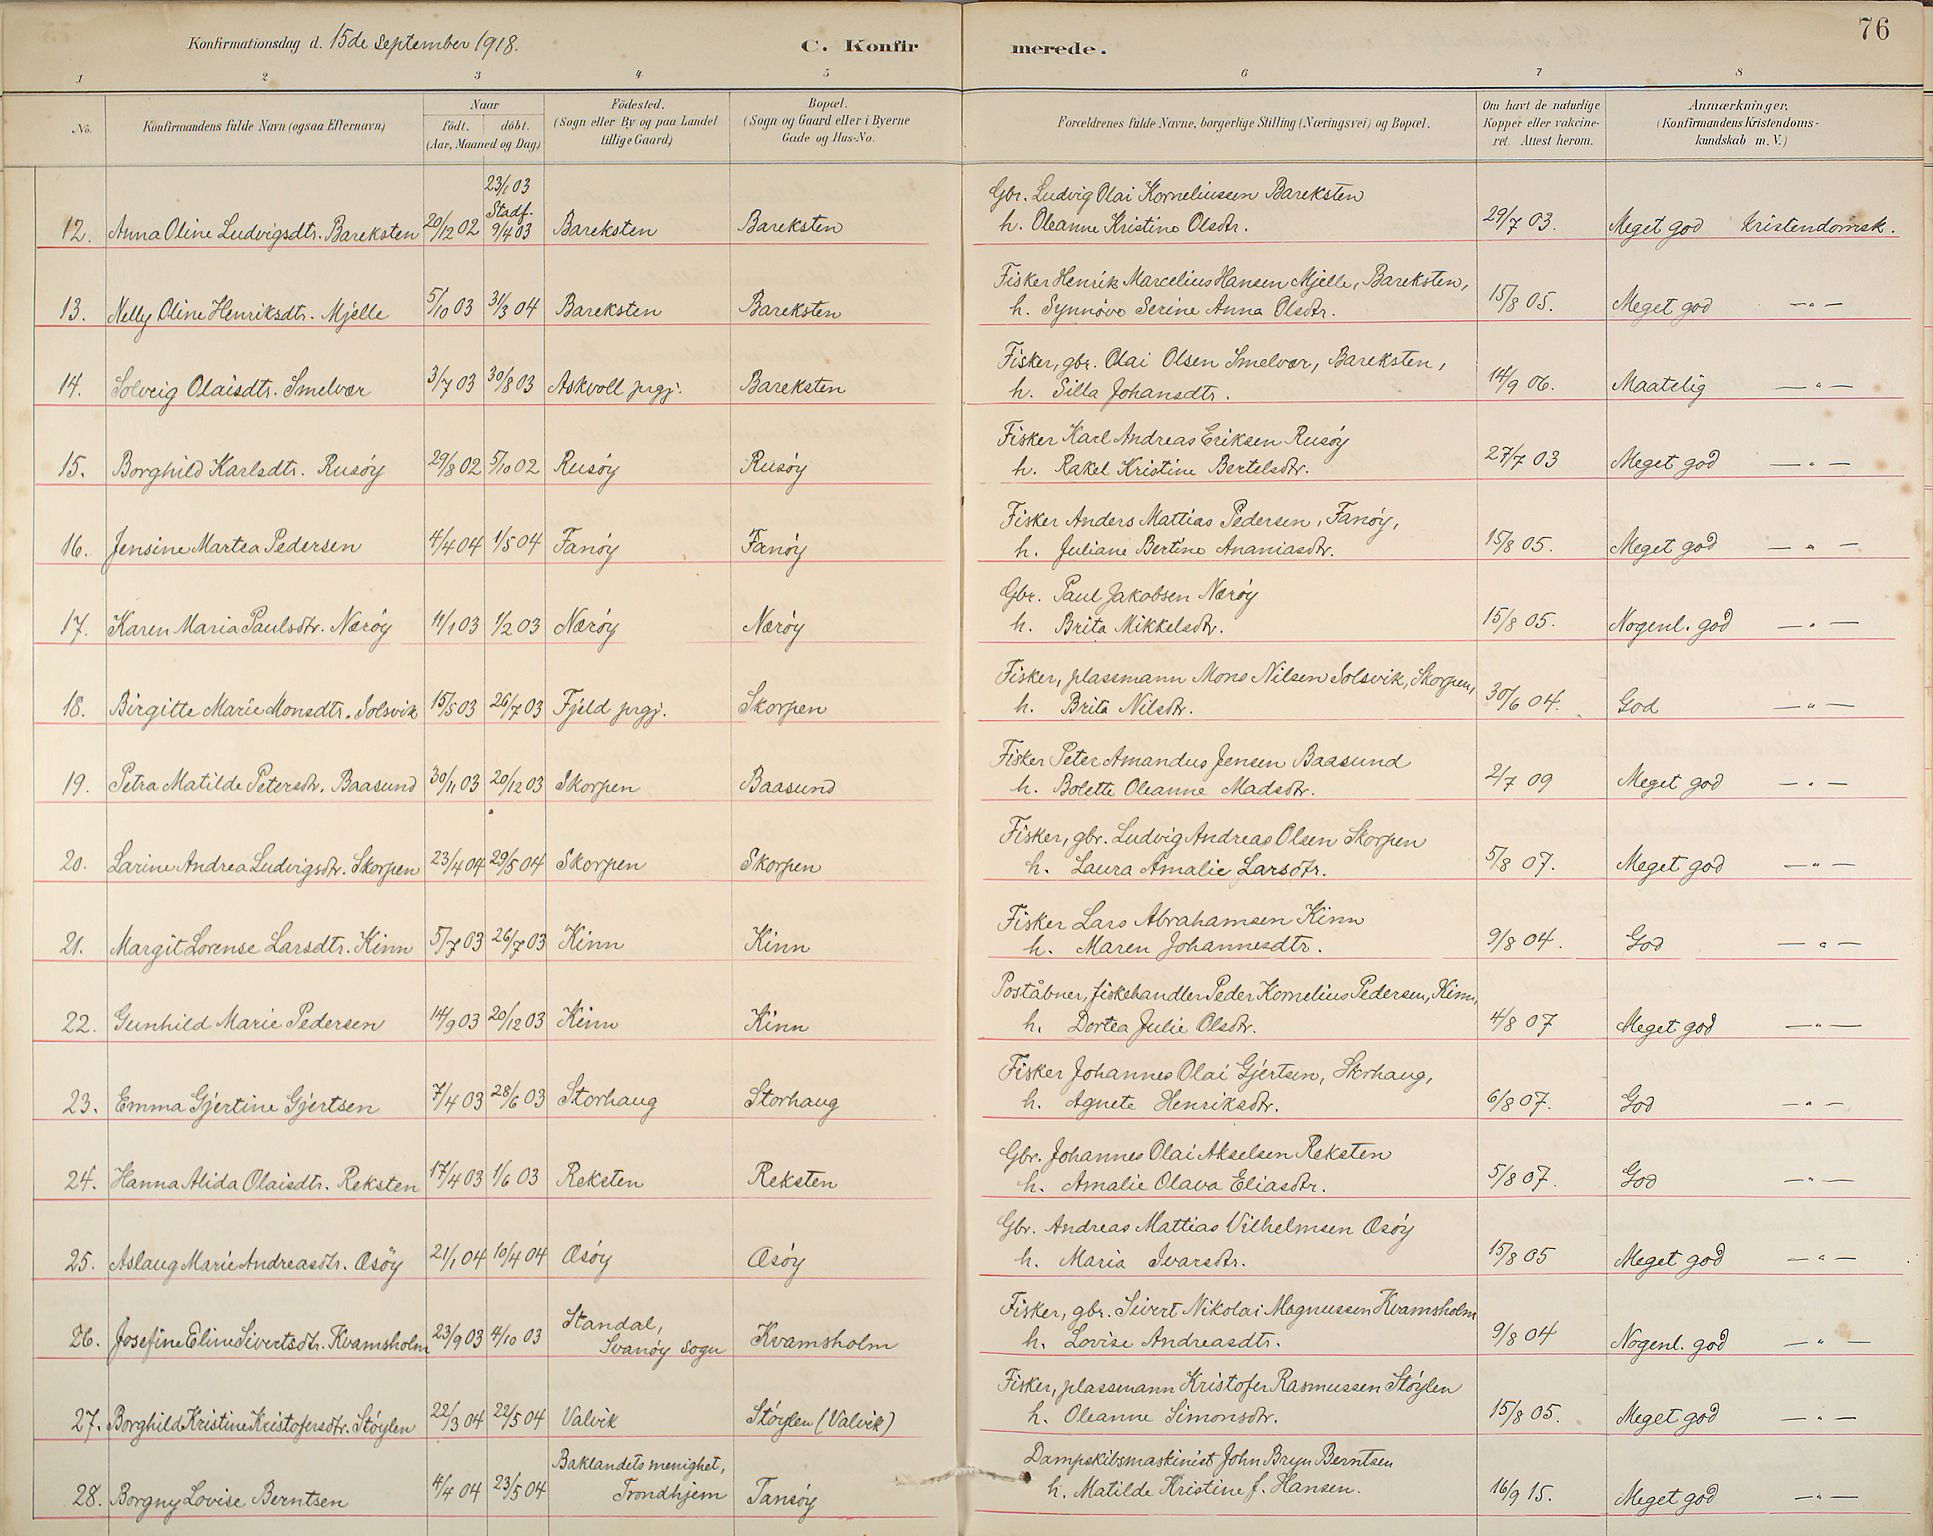 76
Konfirmationsdag d. 15de september 1918.
C. Konfirmerede.
1 2 3 4 5 6 7 8
No.
Konfirmandens fulde Navn (ogsaa Efternavn)
Naar
födt. döbt.
(Aar, Maaned og Dag)
Födested.
(Sogn eller By og paa Landet
tillige Gaard)
Bopæl.
(Sogn og Gaard eller i Byerne
Gade og Hus-No.
Forældrenes fulde Navne, borgerlige Stilling (Næringsvei) og Bopæl.
Om havt de naturlige
Kopper eller vakcine-
ret. Attest herom.
Anmærkninger.
(Konfirmandens Kristendoms-
kundskab m. V.)
23/1 03
Stadf.
12. Anna Oline Ludvigsdtr. Bareksten 20/12 02 9/4 03 Bareksten Bareksten
Gbr. Ludvig Olai Korneliussen Bareksten
h. Oleanne Kristine Olsdtr. 29/7 03. Meget god Kristendomsk.
13. Nelly Oline Henriksdtr. Mjelle 5/10 03 31/3 04 Bareksten Bareksten
Fisker Henrik Marcelius Hansen Mjelle, Bareksten,
h. Synnöve Serine Anna Olsdtr. 15/8 05. Meget god —"—
14. Solveig Olaisdtr. Smelvær 3/7 03 30/8 03 Askvoll prgj. Bareksten
Fisker, gbr. Olai Olsen Smelvær, Bareksten,
h. Silla Johansdtr. 14/9 06. Maatelig —"—
15. Borghild Karlsdtr. Rusöy 29/8 02 5/10 02 Rusöy Rusöy
Fisker Karl Andreas Eriksen Rusöy
h. Rakel Kristine Bertelsdtr. 27/7 03 Meget god —"—
16. Jensine Martea Pedersen 4/4 04 1/5 04 Fanöy Fanöy
Fisker Anders Mattias Pedersen, Fanöy,
h. Juliane Bertine Ananiasdtr. 15/8 05. Meget god —"—
17. Karen Maria Paulsdtr. Næröy 11/1 03 1/2 03 Næröy Næröy
Gbr. Paul Jakobsen Næröy
h. Brita Mikkelsdtr. 15/8 05. Nogenl. god —"—
18. Birgitte Marie Monsdtr. Solsvik 15/5 03 26/7 03 Fjeld prgj. Skorpen
Fisker, plassmann Mons Nilsen Solsvik, Skorpen,
h. Brita Nilsdtr. 30/6 04. God —"—
19. Petra Matilde Petersdtr. Baasund 30/11 03 20/12 03 Skorpen Baasund
Fisker Peter Amandus Jensen Baasund
h. Bolette Oleanne Madsdtr. 2/7 09 Meget god —"—
20. Larine Andrea Ludvigsdtr. Skorpen 23/4 04 29/5 04 Skorpen Skorpen
Fisker, gbr. Ludvig Andreas Olsen Skorpen
h. Laura Amalie Larsdtr. 5/8 07. Meget god —"—
21. Margit Lorense Larsdtr. Kinn 5/7 03 26/7 03 Kinn Kinn
Fisker Lars Abrahamsen Kinn
h. Maren Johannesdtr. 9/8 04. God —"—
22. Gunhild Marie Pedersen 14/9 03 20/12 03 Kinn Kinn
Poståbner, fiskehandler Peder Kornelius Pedersen, Kinn,
h. Dortea Julie Olsdtr. 4/8 07 Meget god —"—
23. Emma Gjertine Gjertsen 7/4 03 28/6 03 Storhaug Storhaug
Fisker Johannes Olai Gjertsen, Storhaug,
h. Agnete Henriksdtr. 6/8 07. God —"—
24. Hanna Alida Olaisdtr. Reksten 17/4 03 1/6 03 Reksten Reksten
Gbr. Johannes Olai Akselsen Reksten
h. Amalie Olava Eliasdtr. 5/8 07. God —"—
25. Aslaug Marie Andreasdtr. Osöy 21/1 04 10/4 04 Osöy Osöy
Gbr. Andreas Mattias Vilhelmsen Osöy
h. Maria Ivarsdtr. 15/8 05 Meget god —"—
26. Josefine Eline Sivertsdtr. Kvamsholm 23/9 03 4/10 03 Standal, Svanöy sogn Kvamsholm
Fisker, gbr. Sivert Nikolai Magnussen Kvamsholm
h. Lovise Andreasdtr. 9/8 04 Nogenl. god —"—
27. Borghild Kristine Kristofersdtr. Stöylen 22/3 04 22/5 04 Valvik Stöylen (Valvik)
Fisker, plassmann Kristofer Rasmussen Stöylen
h. Oleanne Simonsdtr. 15/8 05. Meget god —"—
28. Borgny Lovise Berntsen 4/4 04 23/5 04 Baklandets menighet, Trondhjem Tansöy
Dampskibsmaskinist John Bryn Berntsen
h. Matilde Kristine f. Hansen. 16/9 15. Meget god —"—